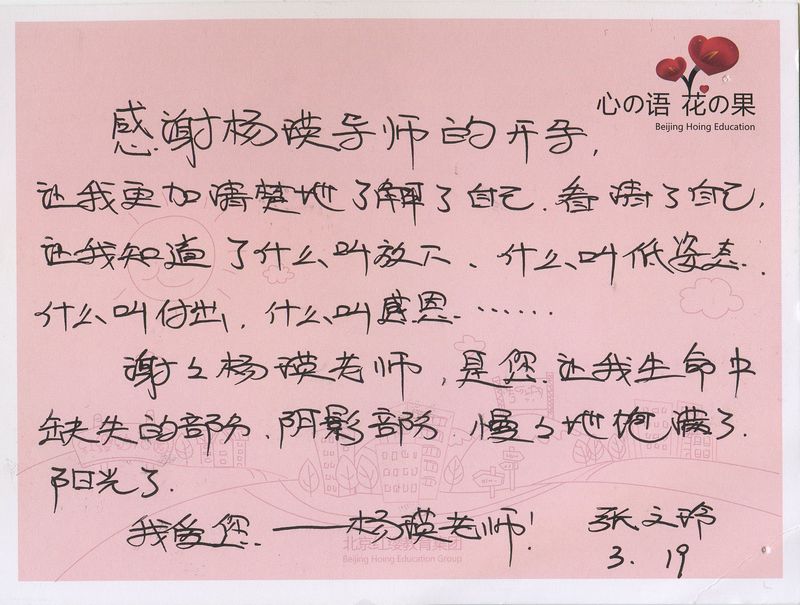 心の语 花の果
Beijing Hoing Education
感谢杨瑛导师的开导,
让我更加清楚地了解了自己、看清了自己,
让我知道了什么叫放下、什么叫低姿态、
什么叫付出, 什么叫感恩……
谢々杨瑛老师, 是您让我生命中
缺失的部分、阴影部分, 慢々地 满了
阳光了.
我爱您——杨瑛老师!
张文玲
3.19
北京红缨教育集团
Beijing Hoing Education Group